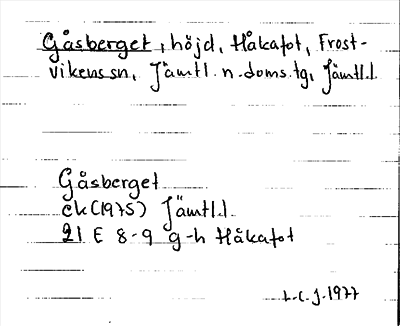 Gåsberget, höjd, Håkafot, Frost-
vikens sn, Jämtl. n. doms.tg, Jämtl.l.
Gåsberget
ek (1975) Jämtl.l
21 E 8-9 g-h Håkafot
L.C.J. 1977